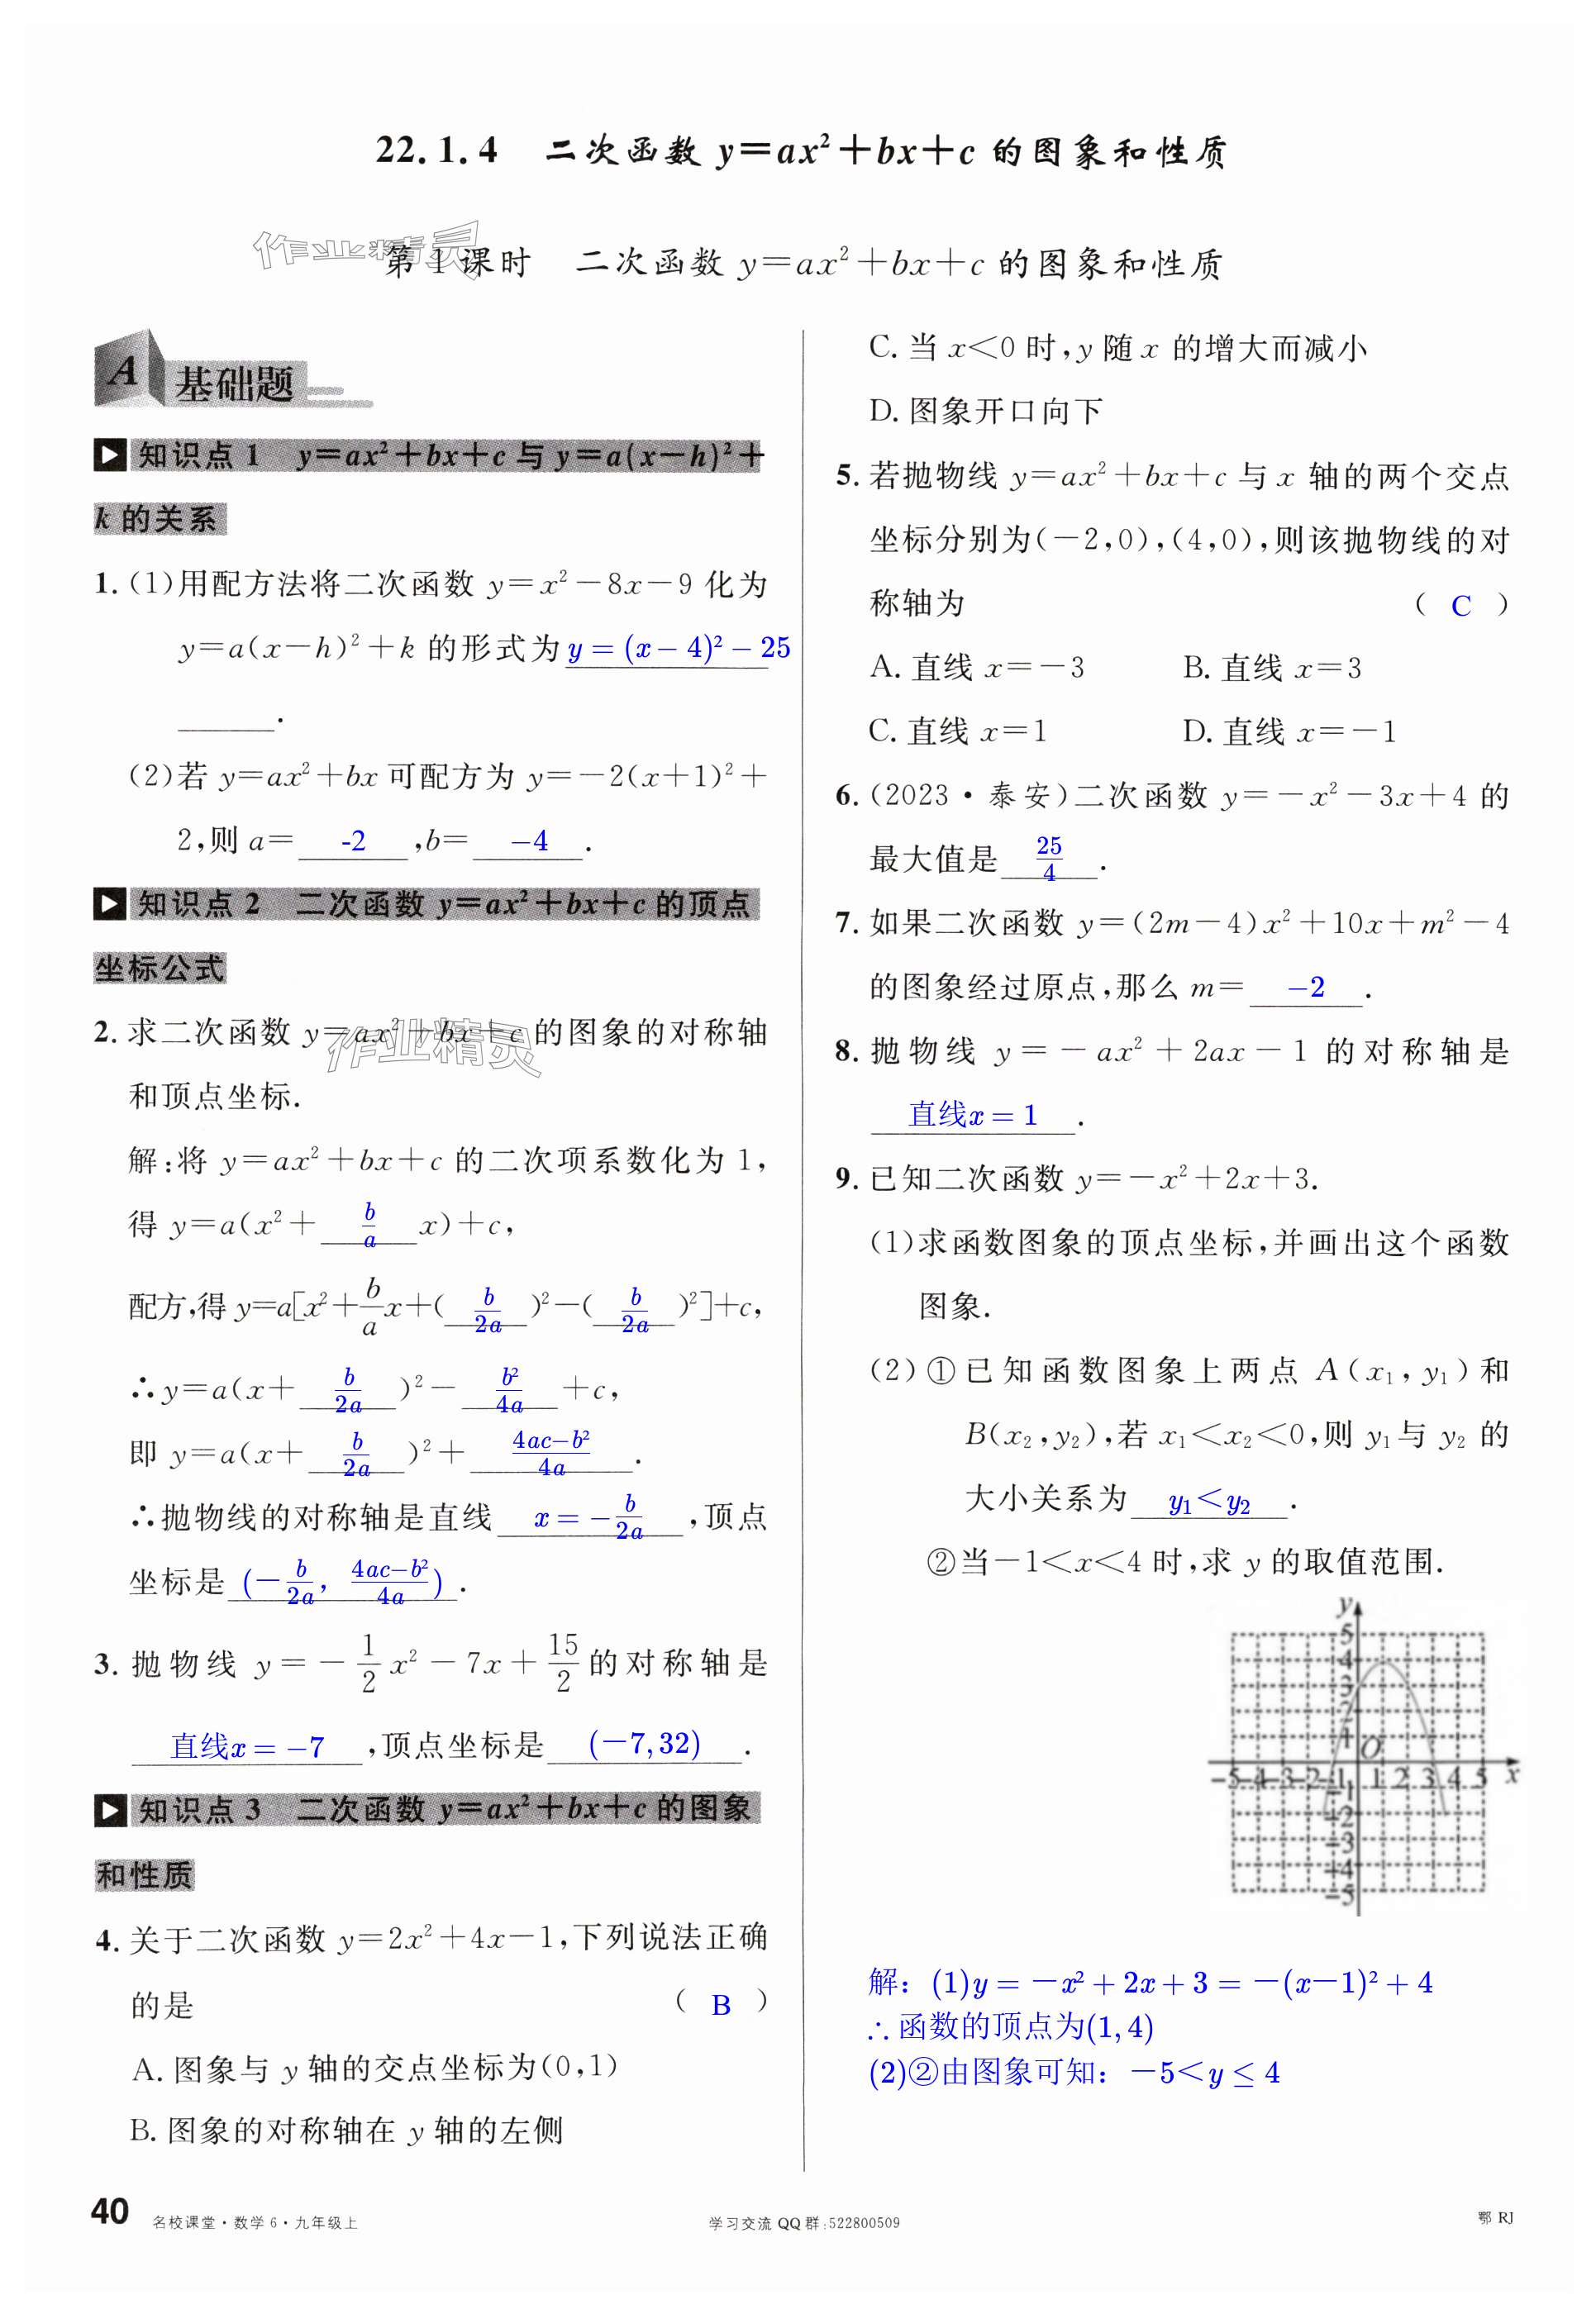 22.1.4 二次函数 y=ax²+bx+c 的图象和性质
作业精灵
第1课时 二次函数 y=ax²+bx+c 的图象和性质
A 基础题
知识点1 y=ax²+bx+c 与 y=a(x-h)²+
k 的关系
1. (1)用配方法将二次函数 y=x²-8x-9 化为
y=a(x-h)²+k 的形式为 y=(x-4)²-25
______.
(2)若 y=ax²+bx 可配方为 y=-2(x+1)²+
2,则 a= -2 ,b= -4 .
知识点2 二次函数 y=ax²+bx+c 的顶点
坐标公式
2. 求二次函数 y=ax²+bx+c 的图象的对称轴
作业精灵
和顶点坐标.
解:将 y=ax²+bx+c 的二次项系数化为 1,
得 y=a(x²+ b/a x)+c,
配方,得 y=a[x²+b/a x+( b/2a )²-( b/2a )²]+c,
∴y=a(x+ b/2a )²- b²/4a +c,
即 y=a(x+ b/2a )²+ 4ac-b²/4a .
∴抛物线的对称轴是直线 x=-b/2a ,顶点
坐标是 (-b/2a, 4ac-b²/4a) .
3. 抛物线 y=-1/2 x²-7x+15/2 的对称轴是
直线x=-7 ,顶点坐标是 (-7,32) .
知识点3 二次函数 y=ax²+bx+c 的图象
和性质
4. 关于二次函数 y=2x²+4x-1,下列说法正确
的是 ( B )
A. 图象与 y 轴的交点坐标为(0,1)
B. 图象的对称轴在 y 轴的左侧
C. 当 x<0 时,y 随 x 的增大而减小
D. 图象开口向下
5. 若抛物线 y=ax²+bx+c 与 x 轴的两个交点
坐标分别为(-2,0),(4,0),则该抛物线的对
称轴为 ( C )
A. 直线 x=-3 B. 直线 x=3
C. 直线 x=1 D. 直线 x=-1
6. (2023·泰安)二次函数 y=-x²-3x+4 的
最大值是 25/4 .
7. 如果二次函数 y=(2m-4)x²+10x+m²-4
的图象经过原点,那么 m= -2 .
8. 抛物线 y=-ax²+2ax-1 的对称轴是
直线x=1 .
9. 已知二次函数 y=-x²+2x+3.
(1)求函数图象的顶点坐标,并画出这个函数
图象.
(2)①已知函数图象上两点 A(x₁,y₁)和
B(x₂,y₂),若 x₁<x₂<0,则 y₁与 y₂ 的
大小关系为 y₁<y₂ .
②当-1<x<4 时,求 y 的取值范围.
y
5
4
3
2
1
O
-5-4-3-2-1 1 2 3 4 5 x
-1
-2
-3
-4
-5
解：(1)y=-x²+2x+3=-(x-1)²+4
∴函数的顶点为(1,4)
(2)②由图象可知：-5<y≤4
40 名校课堂·数学6·九年级上 学习交流QQ群:522800509 鄂 RJ